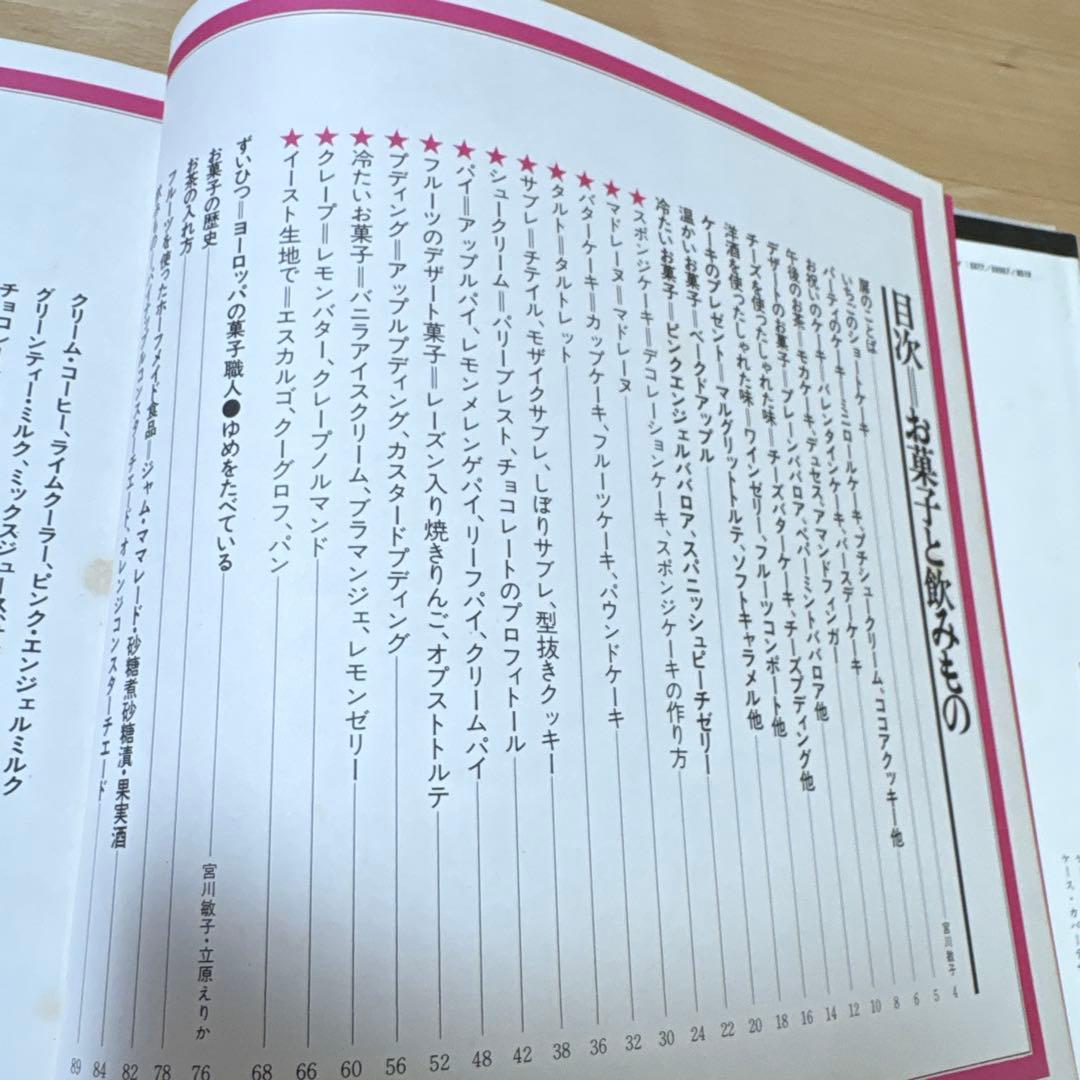 目次＝お菓子と飲みもの
扉のことば 宮川敏子 4
いちごのショートケーキ 5
パーティのケーキ＝ミニロールケーキ、プチシュークリーム、ココアクッキー他 6
お祝いのケーキ＝バレンタインケーキ、バースデーケーキ 8
午後のお茶＝モカケーキ、デュセス、アマンドフィンガー 10
デザートのお菓子＝プレーンババロア、ペパーミントババロア他 12
チーズを使ったしゃれた味＝チーズバターケーキ、チーズプディング他 14
洋酒を使ったしゃれた味＝ワインゼリー、フルーツコンポート他 16
ケーキのプレゼント＝マルグリットトルテ、ソフトキャラメル他 18
温かいお菓子＝ベークドアップル 20
冷たいお菓子＝ピンクエンジェルババロア、スパニッシュピーチゼリー 22
★スポンジケーキ＝デコレーションケーキ、スポンジケーキの作り方 24
★マドレーヌ＝マドレーヌ 30
★バターケーキ＝カップケーキ、フルーツケーキ、パウンドケーキ 32
★タルト＝タルトレット 36
★サブレ＝チテイル、モザイクサブレ、しぼりサブレ、型抜きクッキー 38
★シュークリーム＝パリーブレスト、チョコレートのプロフィトール 42
★パイ＝アップルパイ、レモンメレンゲパイ、リーフパイ、クリームパイ 48
★フルーツのデザート菓子＝レーズン入り焼きりんご、オプストトルテ 52
★プディング＝アップルプディング、カスタードプディング 56
★冷たいお菓子＝バニラアイスクリーム、ブラマンジェ、レモンゼリー 60
★クレープ＝レモンバター、クレープノルマンド 66
★イースト生地で＝エスカルゴ、クーグロフ、パン 68
ずいひつ＝ヨーロッパの菓子職人●ゆめをたべている 宮川敏子・立原えりか 76
お菓子の歴史 78
お茶の入れ方 82
フルーツを使ったホームメイド食品＝ジャム・ママレード・砂糖煮砂糖漬・果実酒 84
パイナップルコンスターチェード、オレンジコンスターチェード 89
クリーム・コーヒー、ライムクーラー、ピンク・エンジェルミルク
グリーンティー・ミルク、ミックスジュース
チョコレー